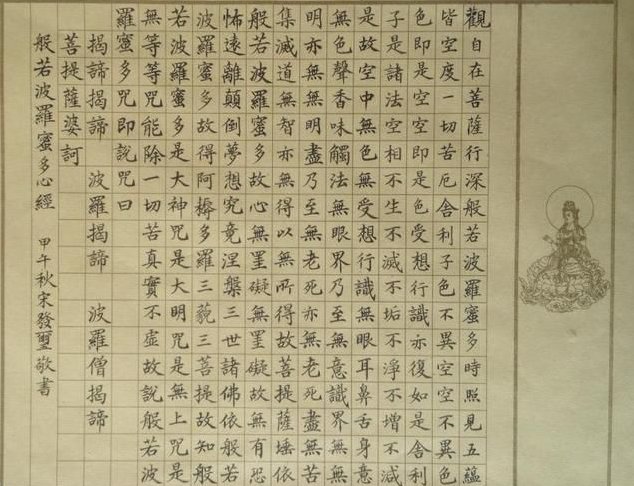 觀自在菩薩行深般若波羅蜜多時照見五蘊
皆空度一切苦厄舍利子色不異空空不異色
色即是空空即是色受想行識亦復如是舍利
子是諸法空相不生不滅不垢不淨不增不減
是故空中無色無受想行識無眼耳鼻舌身意
無色聲香味觸法無眼界乃至無意識界無無
明亦無無明盡乃至無老死亦無老死盡無苦
集滅道無智亦無得以無所得故菩提薩埵依
般若波羅蜜多故心無罣礙無罣礙故無有恐
怖遠離顛倒夢想究竟涅槃三世諸佛依般若
波羅蜜多故得阿耨多羅三藐三菩提故知般
若波羅蜜多是大神咒是大明咒是無上咒是
無等等咒能除一切苦真實不虛故說般若波
羅蜜多咒即說咒曰
揭諦揭諦 波羅揭諦 波羅僧揭諦
菩提薩婆訶
般若波羅蜜多心經 甲午秋宋發璽敬書